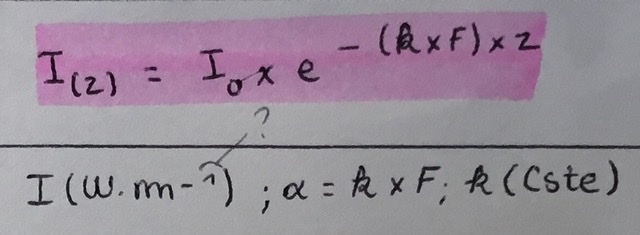 I(z) = I₀ x e⁻⁽ᵏ ˣ ᶠ⁾ ˣ ᶻ
?
I (W.m-1) ; α = k x F; k (Cste)